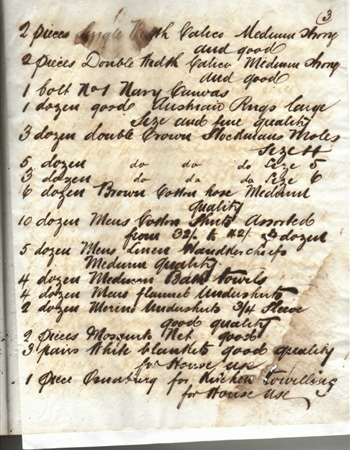 (3
2 pieces Single Width Calico Medium Strong
and good
2 pieces Double Width Calico Medium Strong
and good
1 bolt No 1 Navy Canvas
1 dozen good Rugs large
Size and fine quality
3 dozen double Crown
Size 4
5 dozen do do do Size 5
3 dozen do do do Size 6
6 dozen Brown Cotton hose Medium
quality
10 dozen Mens Cotton Shirts Assorted
from 32/- to 42/- dozen
5 dozen Mens Linen Handkerchiefs
Medium quality
4 dozen Medium Bath towels
4 dozen Mens flannel Undershirts
2 dozen Merino Undershirts 3/4 Sleeve
good quality
2 pieces Mosquito Net good
3 pairs White blankets good quality
for House use
1 piece Osnaburg for Kitchen Towelling
for House use